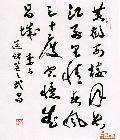 黄鹤西楼月长
江万里情春风
三十度空忆武
昌城 李白
送储邕之武昌